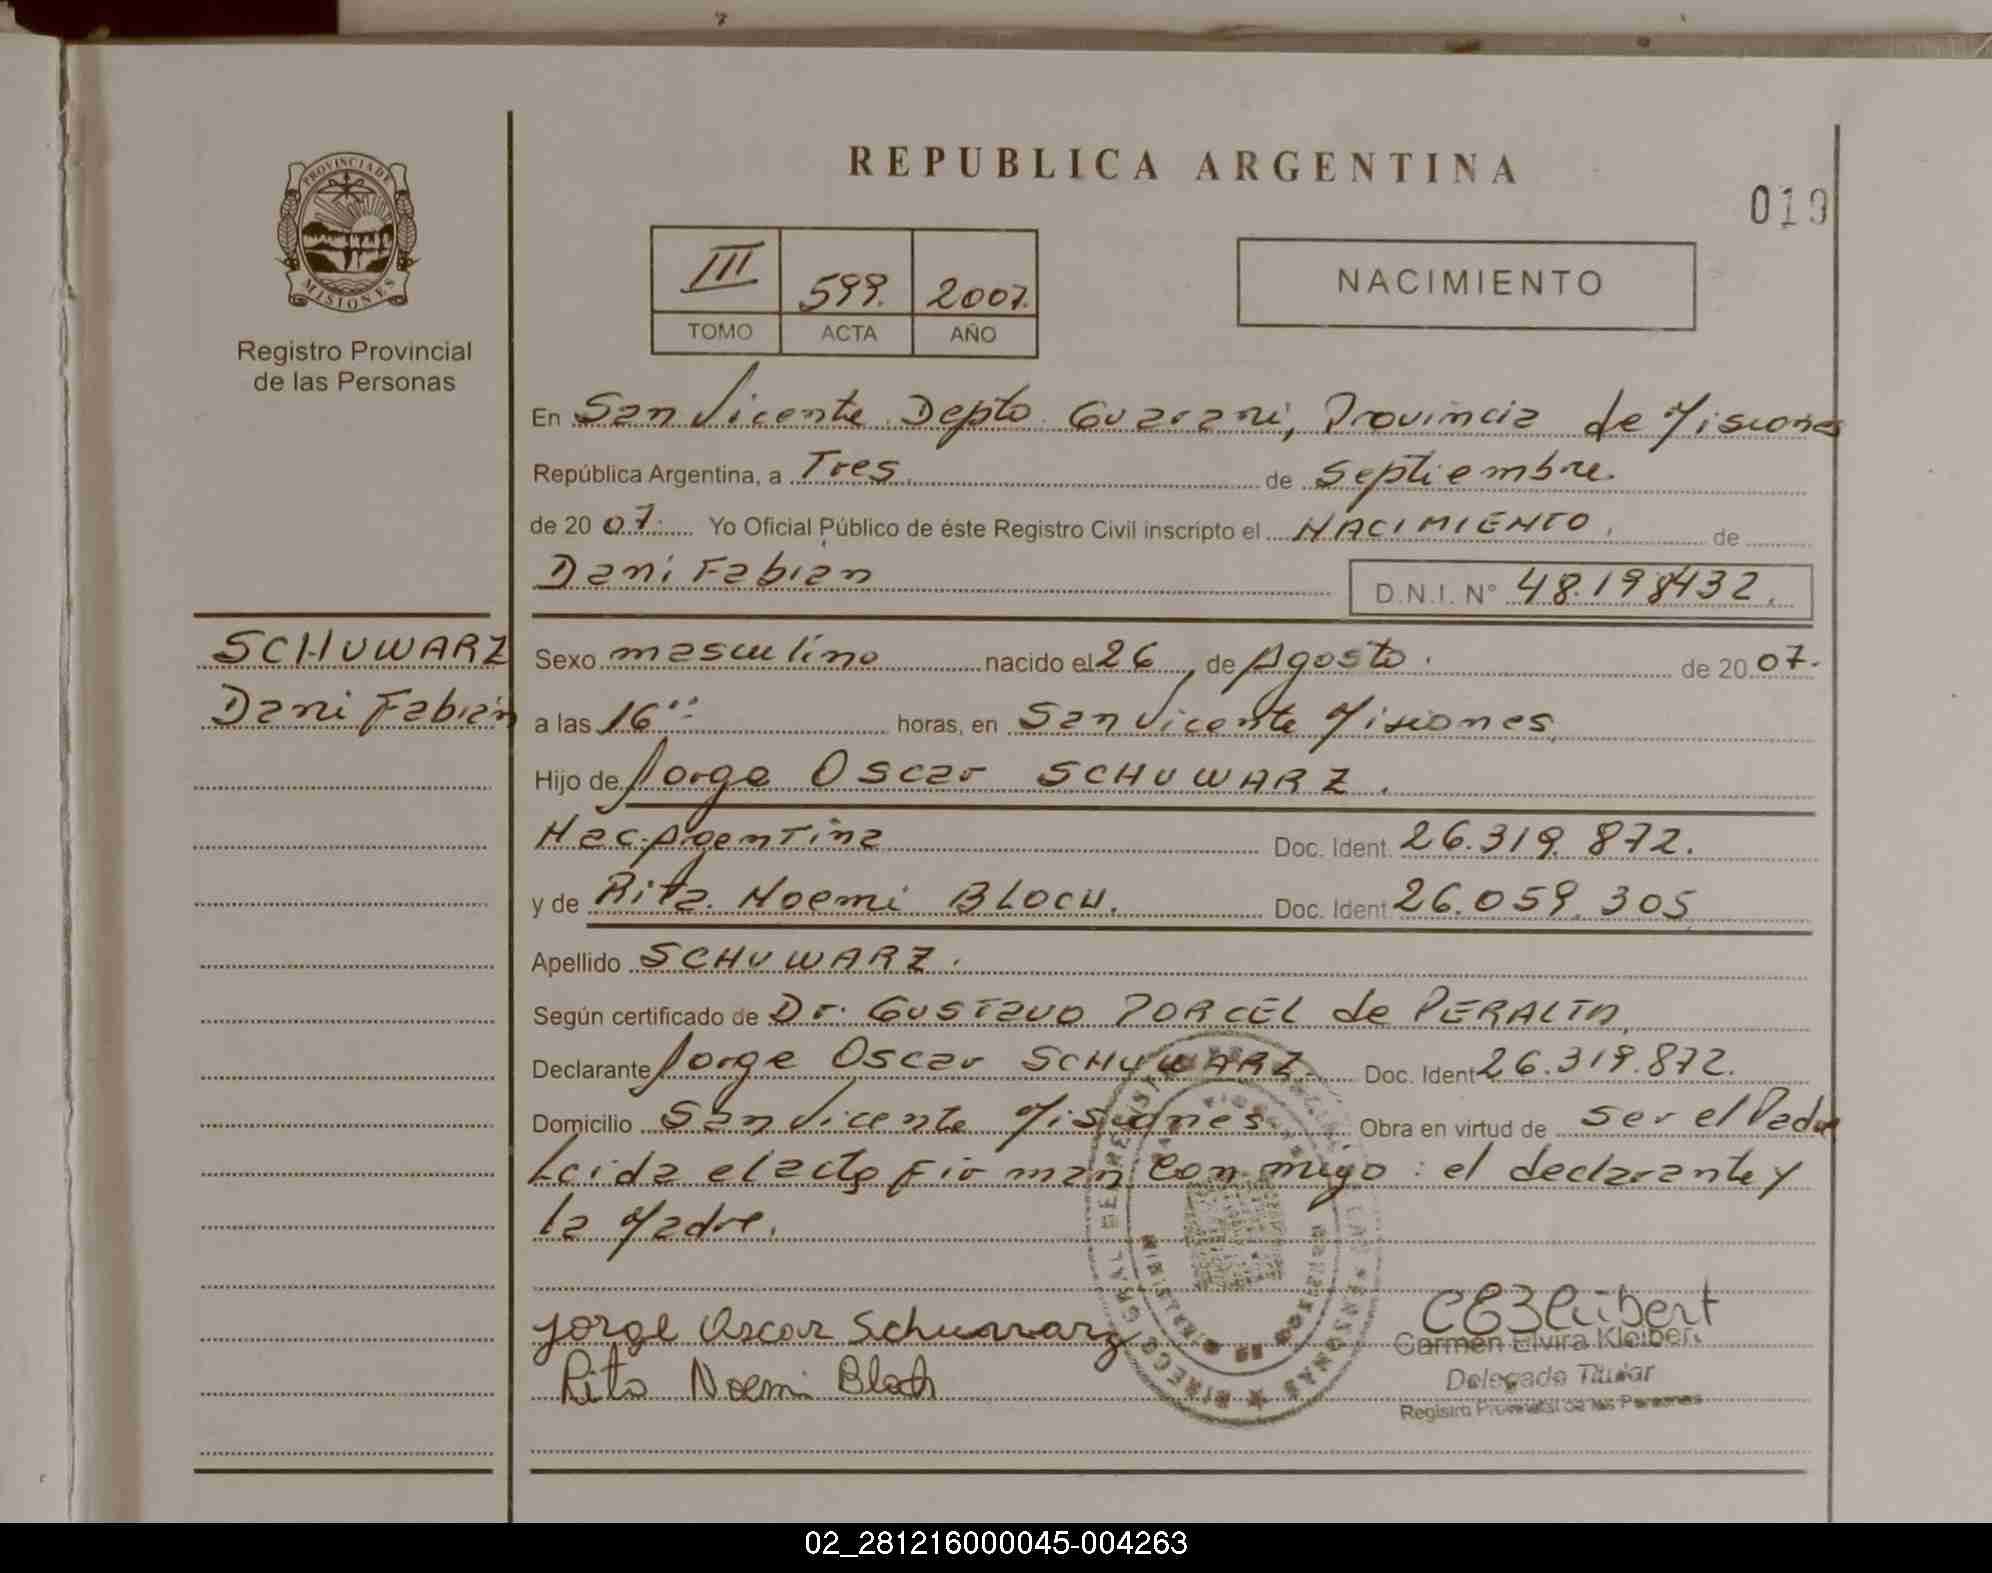 REPUBLICA ARGENTINA
019
PROVINCIA DE
MISIONES
Registro Provincial
de las Personas
III 599. 2007.
TOMO ACTA AÑO
NACIMIENTO
En San Vicente Depto Guarani, Provincia de Misiones
República Argentina, a Tres de Septiembre.
de 20 07. Yo Oficial Público de éste Registro Civil inscripto el NACIMIENTO, de
Dani Fabian D.N.I. Nº 48.198432.
SCHUWARZ
Dani Fabian
Sexo masculino nacido el 26, de Agosto. de 20 07.
a las 16 horas, en San Vicente Misiones
Hijo de Jorge Oscar SCHUWARZ.
Nac. Argentina Doc. Ident. 26.319.872.
y de Rita Noemi BLOCH. Doc. Ident. 26.059.305
Apellido SCHUWARZ.
Según certificado de Dr. GUSTavo PORCEL de PERALTA,
Declarante Jorge Oscar SCHUWARZ. Doc. Ident 26.319.872.
Domicilio San Vicente Misiones Obra en virtud de ser el Padre
Leida el acta firman conmigo: el declarante y
la Madre.
Jorge Oscar Schuwarz
Rita Noemi Bloch
Carmen Elvira Kleibert
Delegada Titular
Registro Provincial de las Personas
02_281216000045-004263